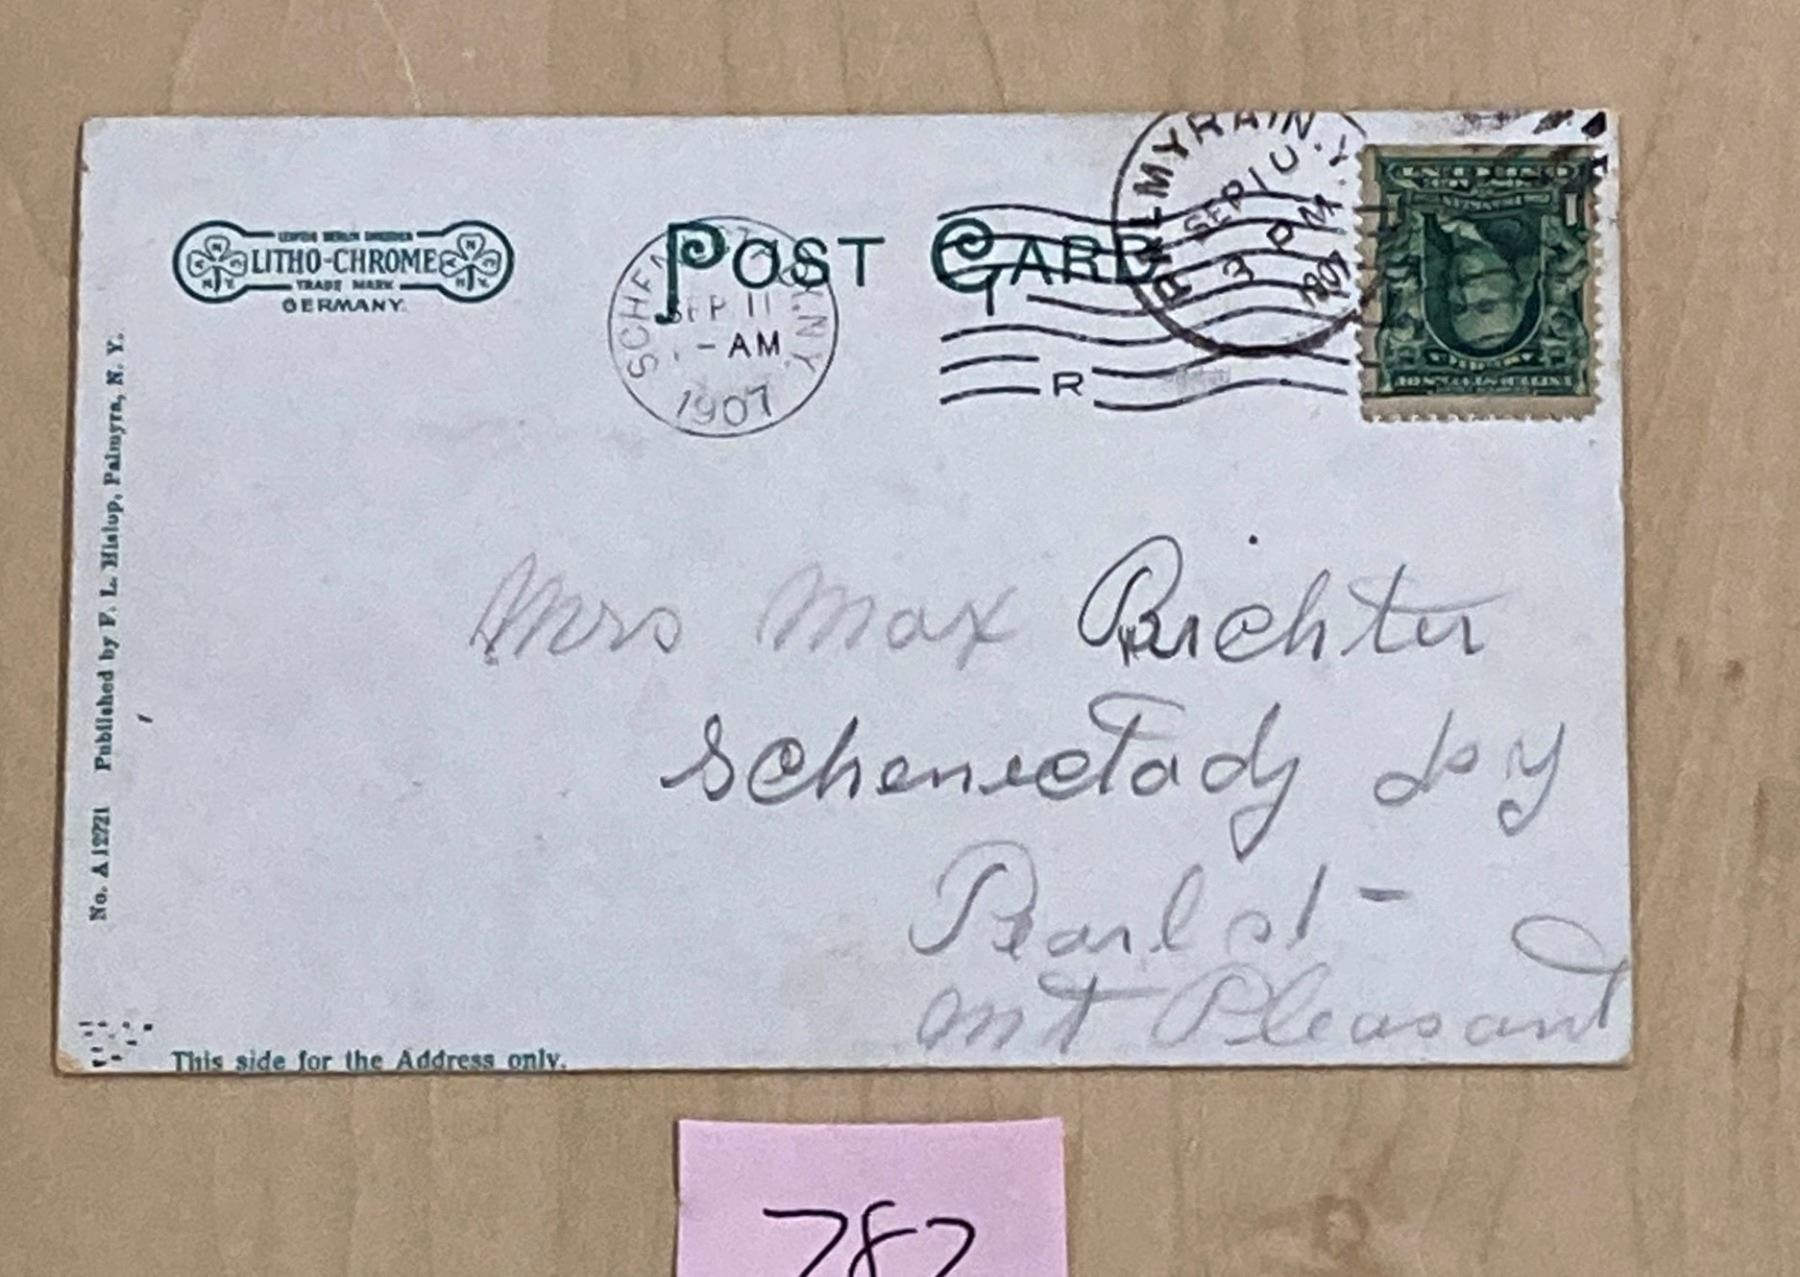 LEIPZIG BERLIN DRESDEN
LITHO-CHROME
TRADE MARK
GERMANY.
N Y
N Y
POST CARD
SCHENECTADY, N.Y.
SEP 11
- AM
1907
PALMYRA, N.Y.
SEP 10
3 PM
1907
R
1
Mrs Max Richter
Schenectady N Y
Pearl st -
Mt Pleasant
No. A 12721 Published by F. L. Hislup, Palmyra, N. Y.
This side for the Address only.
782